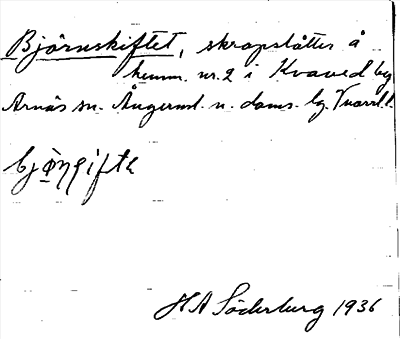 Björnskiftet, skrapslåtter å
hemm. nr. 2 i Kvaved by
Arnäs sn. Ångerml. n. doms. lg.
bjön̥ıfte
H A Söderburg 1936